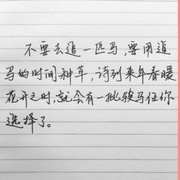 不要去追一匹马,要用追
马的时间种草,待到来年春暖
花开之时,就会有一批骏马任你
选择了。